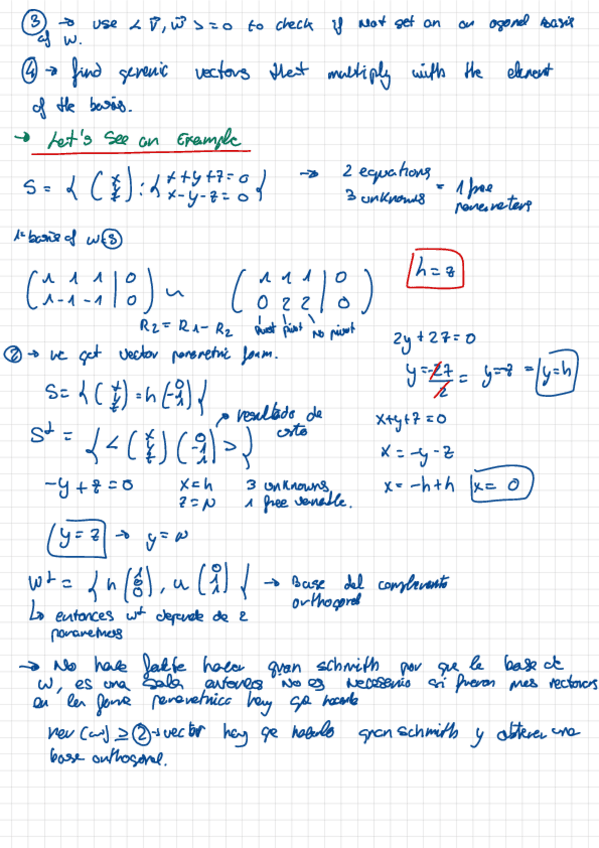 ③ → use < v⃗, w⃗ > = 0 to check if not set on an ogonal basis
of W.
④ → find generic vectors that multiply with the element
of the basis.
→ Let's see an Example
S = { (x y z) : { x+y+z=0 x-y-z=0 } → 2 equations 3 unknowns = 1 free parameters
1º basis of W(S)
( 1 1 1 | 0 1 -1 -1 | 0 ) ~ ( 1 1 1 | 0 0 2 2 | 0 ) h = z
R2 = R1 - R2 pivot pivot no pivot
2y + 2z = 0
② → we get vector parametric form.
y = -2z/2 = y = -z = y = h
S = { (x y z) = h (0 -1 1) }
x+y+z=0
S⊥ = { < (x y z) (0 -1 1) > } → resultado de
x = -y - z
-y + z = 0 x = h z = N 3 unknowns 1 free variable.
x = -h + h x = 0
y = z → y = N
W⊥ = { h (1 0 0), u (0 1 1) } → Base del complemento
orthogonal
↳ entonces W⊥ depende de 2
parametros
→ No hace falta hacer gran schmith por que la base de
W, es una sola entonces no es necesario si fueran mas vectores
en la forma parametrica hay qe hacerlo
≥ ② → vector hay qe hacerlo gran schmith y obtener una
base orthogonal.